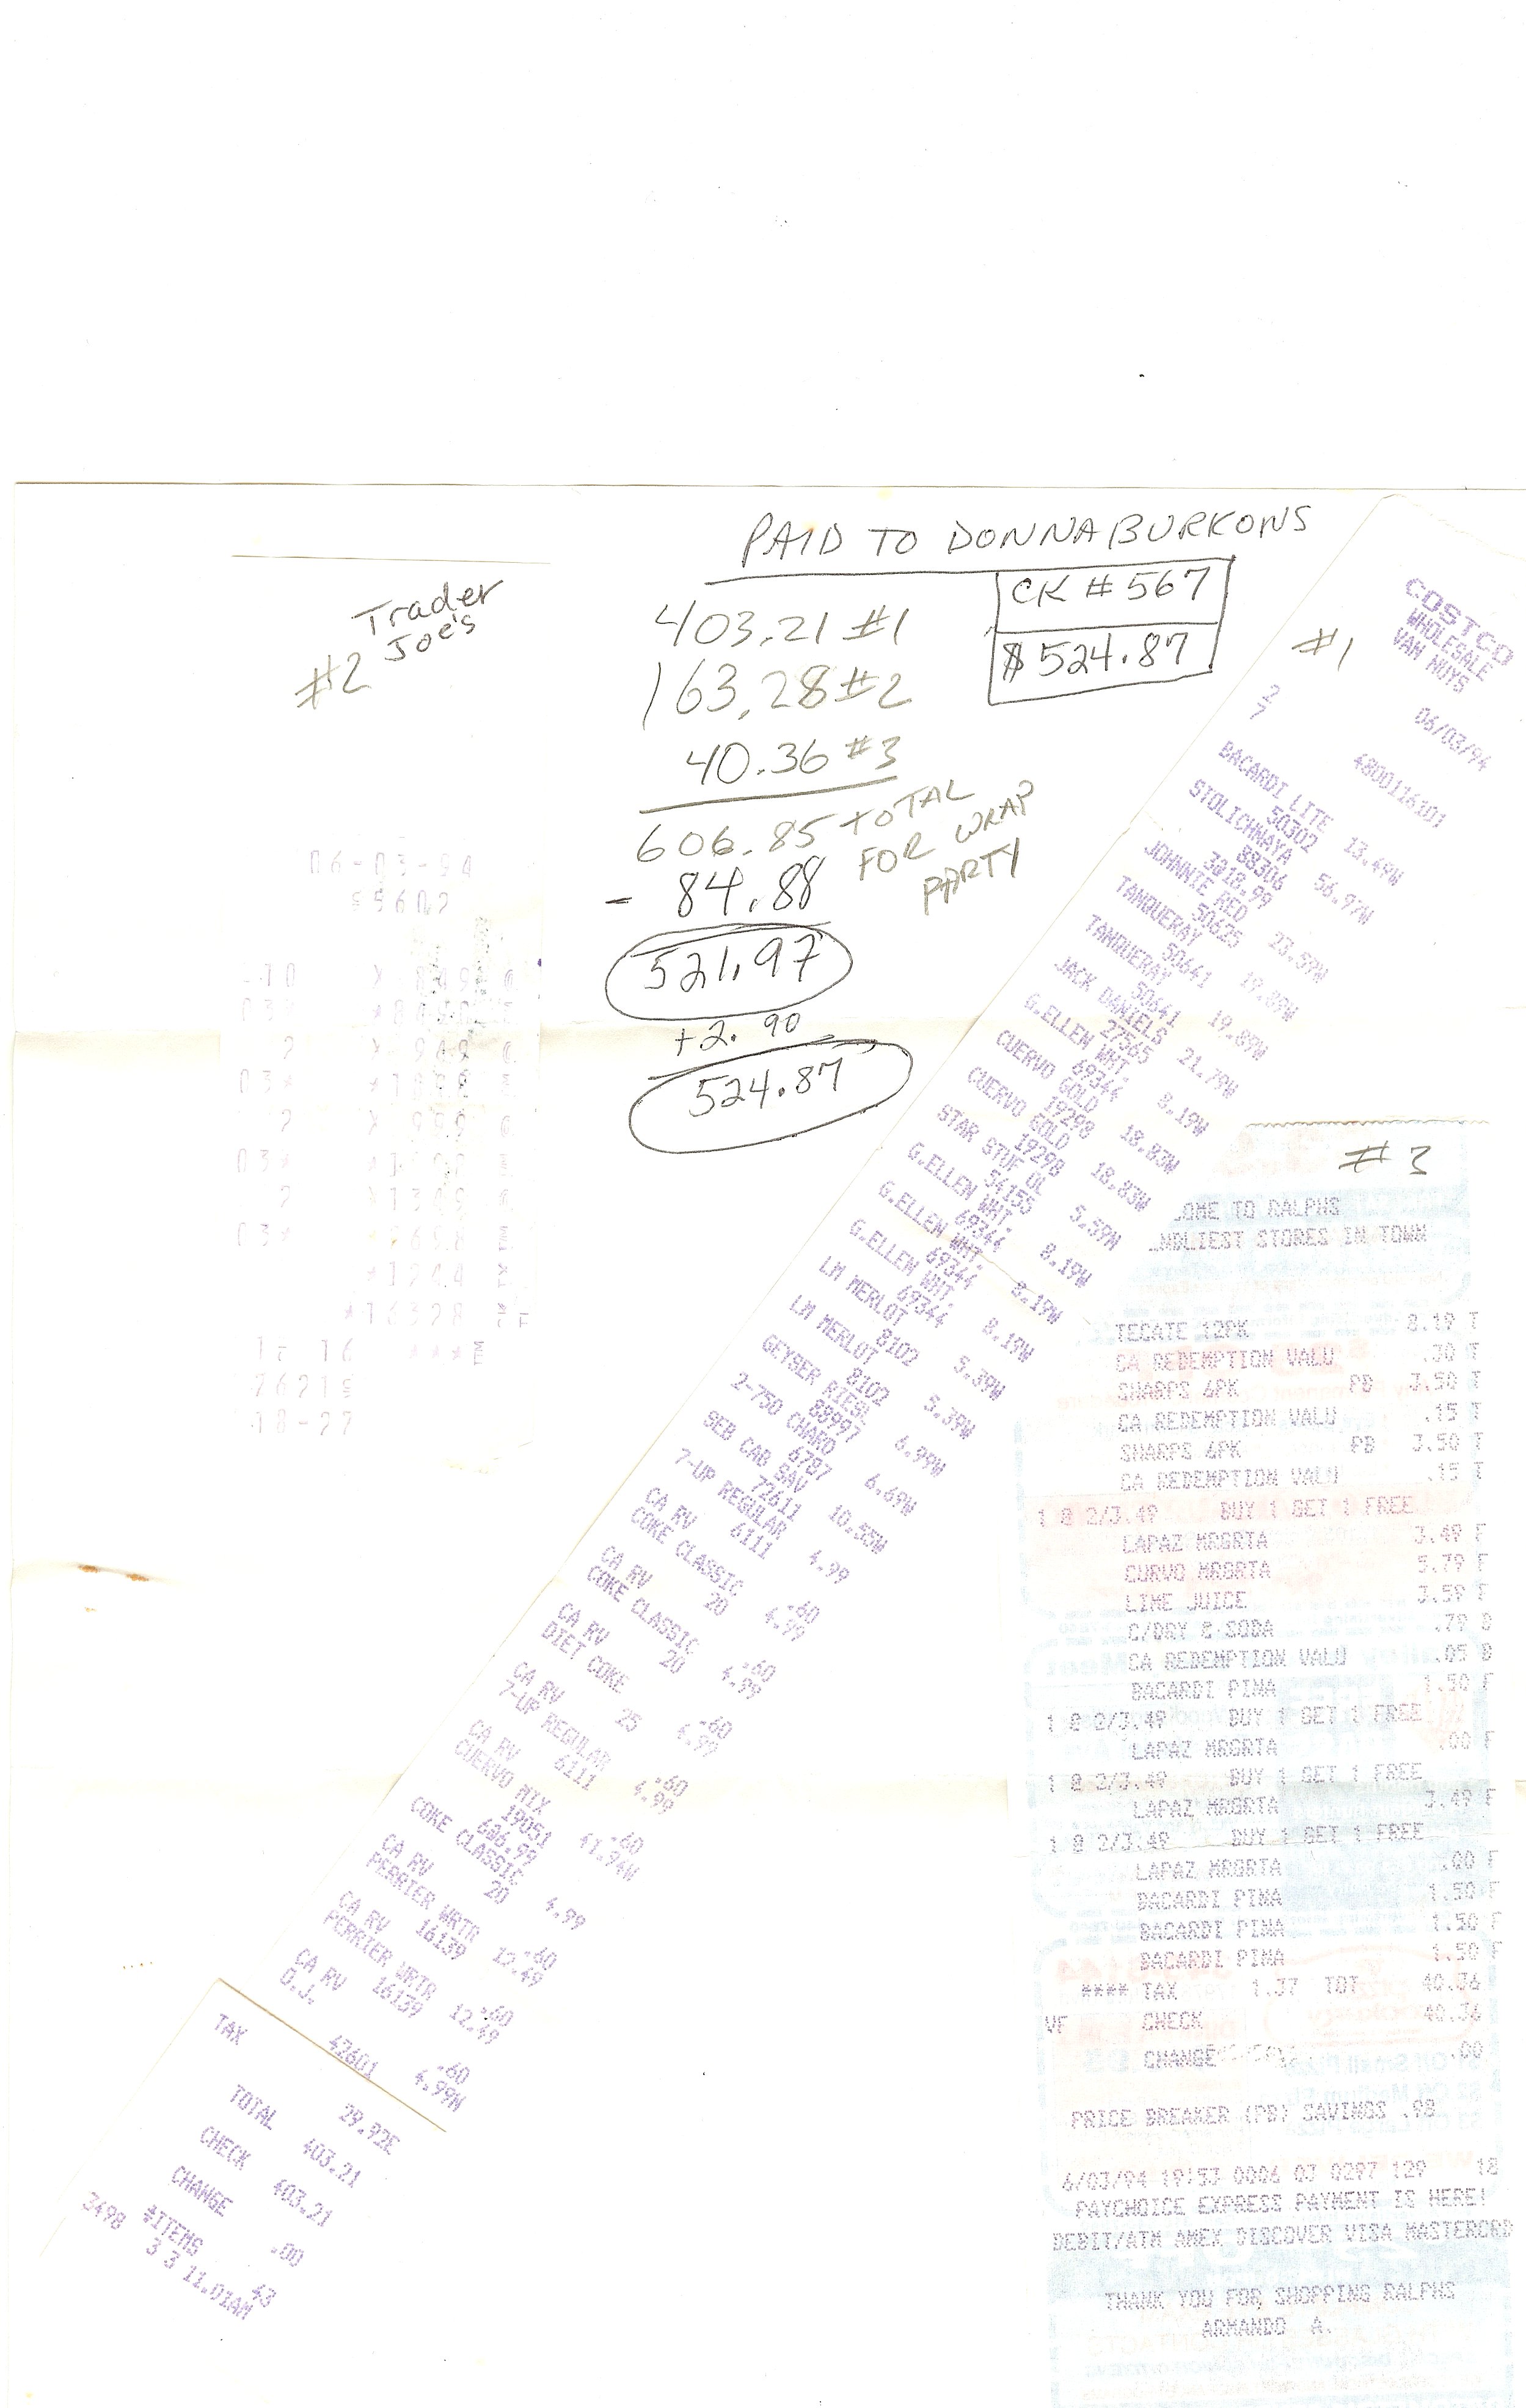 PAID TO DONNA BURKONS
CK # 567
$ 524.87
403.21 #1
163.28 #2
40.36 #3
606.85 TOTAL FOR WRAP PARTY
- 84.88
521.97
+2.90
524.87
Trader
Joe's
#2
06-03-94
*16328
#1
COSTCO
WHOLESALE
VAN NUYS
06/03/94
2
7
BACARDI LITE
50302 13.49W
STOLICHNAYA
88306 56.97W
3@18.99
JOHNNIE RED
50625 23.59W
TANQUERAY
50641 19.89W
TANQUERAY
50641 19.89W
JACK DANIELS
27565 21.79W
G.ELLEN WHT.
69344 8.19W
CUERVO GOLD
19298 18.83W
CUERVO GOLD
19298 18.83W
STAR STUF OL
54155 5.59N
G.ELLEN WHT.
69344 8.19W
G.ELLEN WHT.
69344 8.19W
G.ELLEN WHT.
69344 8.19W
LM MERLOT
8102 5.39W
LM MERLOT
8102 5.39W
GEYSER RIESL
88997 6.99W
2-750 CHARD
6787 6.69W
SEB CAB SAV
72611 10.55W
7-UP REGULAR
6111 4.99
CA RV .60
COKE CLASSIC
20 4.99
CA RV .60
COKE CLASSIC
20 4.99
CA RV .60
DIET COKE
25 4.99
CA RV .60
7-UP REGULAR
6111 4.99
CA RV .60
CUERVO MIX
19051 41.94W
6@6.99
COKE CLASSIC
20 4.99
CA RV .60
PERRIER WRTR
16139 12.49
CA RV .60
PERRIER WRTR
16139 12.49
CA RV .60
O.J.
42601 4.99N
TAX 29.92E
TOTAL 403.21
CHECK 403.21
CHANGE .00
#ITEMS 43
3498 3 3 11.01AM
#3
OME TO RALPHS
NDLIEST STORES IN TOWN
TECATE 12PK 8.19 T
CA REDEMPTION VALU .30 T
SHARPS 6PK PB 3.50 T
CA REDEMPTION VALU .15 T
SHARPS 6PK PB 3.50 T
CA REDEMPTION VALU .15 T
1 @ 2/3.49 BUY 1 GET 1 FREE
LAPAZ MRGRTA 3.49 F
CURVO MRGRTA 5.79 F
LIME JUICE 3.59 F
C/DRY C SODA .79 B
CA REDEMPTION VALU .05 B
BACARDI PINA 1.50 F
1 @ 2/3.49 BUY 1 GET 1 FREE
LAPAZ MRGRTA .00 F
1 @ 2/3.49 BUY 1 GET 1 FREE
LAPAZ MRGRTA 3.49 F
1 @ 2/3.49 BUY 1 GET 1 FREE
LAPAZ MRGRTA .00 F
BACARDI PINA 1.50 F
BACARDI PINA 1.50 F
BACARDI PINA 1.50 F
**** TAX 1.37 TOT 40.36
VF CHECK 40.36
CHANGE .00
PRICE BREAKER (PB) SAVINGS .98
6/03/94 19:53 0006 03 0297 129 18
PAYCHOICE EXPRESS PAYMENT IS HERE!
DEBIT/ATM AMEX DISCOVER VISA MASTERCRD
THANK YOU FOR SHOPPING RALPHS
ARMANDO A.